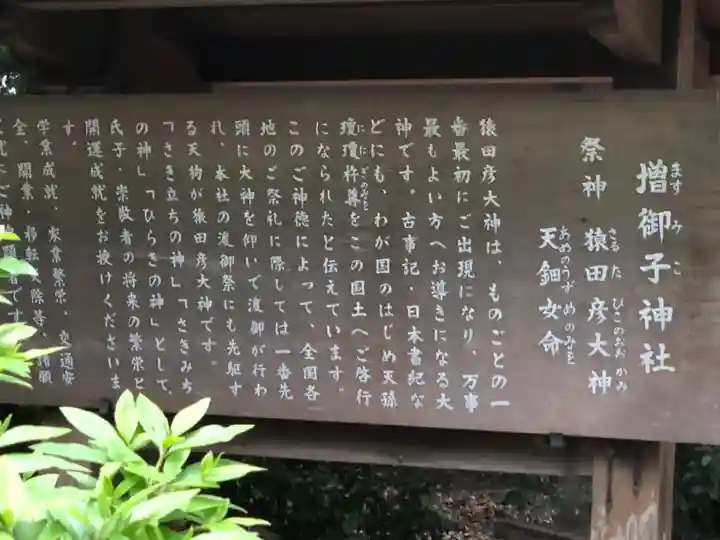 増御子神社
ますみこ
祭神 猿田彦大神
さるたひこのおおかみ
天鈿女命
あめのうずめのみこと
猿田彦大神は、ものごとの一
番最初にご出現になり、万事
最もよい方へお導きになる大
神です。古事記・日本書紀な
どにも、わが国のはじめ天孫
瓊瓊杵尊をこの国土へご啓行
ににぎのみこと
になられたと伝えています。
このご神徳によって、全国各
地のご祭礼に際しては一番先
頭に大神を仰いで渡御が行わ
れ、本社の渡御祭にも先駆す
る天狗が猿田彦大神です。
「さき立ちの神」「さきみち
の神」「ひらきの神」として、
氏子・崇敬者の将来の繁栄と
開運成就をお授けくださいま
す。
学業成就、家業繁栄、交通安
全、開業、移転、除等、